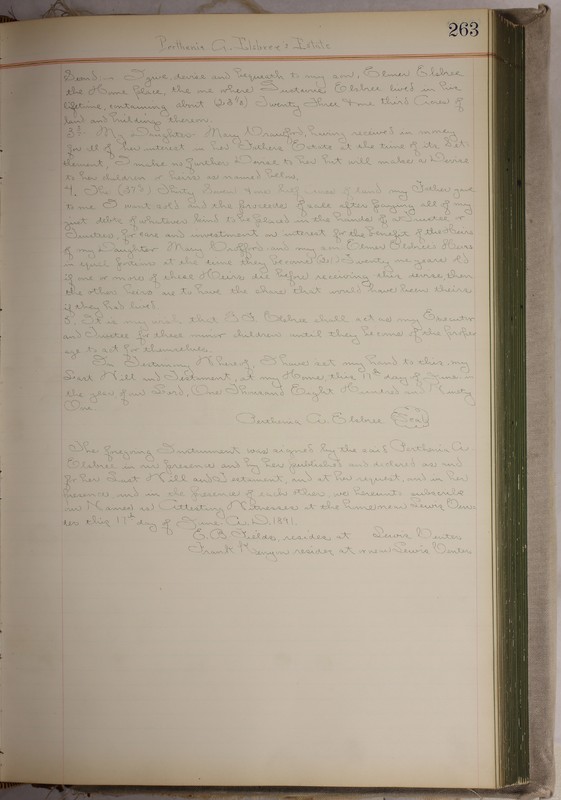 263
Parthenia A. Elsbree's Estate
Second. I give, devise and bequeath to my son, Elmer Elsbree
the Home place, the one where Elsbree lived in his
lifetime, containing about (23⅓) Twenty three & one third Acres of
land and buildings thereon.
3d. My Daughter Mary having received in money
for all of her interest in her Fathers Estate at the time of its Set-
tlement, I make no further to her but will make a Devise
to her children or heirs as named below
4. The (37½) Thirty Seven & one half acres of land my Father gave
to me I want sold and the proceeds of sale after paying all of my
just debts of whatever kind to be placed in the hands of a Trustee or
Trustees, for care and investment on interest for the Benefit of the Heirs
of my Daughter Mary and my son Elmer Elsbree's Heirs
in equal portions at the time they become (21) Twenty one years old
If one or more of these Heirs die before receiving this devise then
the other heirs are to have the share that would have been theirs
if they had lived.
5. It is my wish that Elsbree shall act as my Executor
and Trustee for these minor children until they become of the proper
age to act for themselves.
In Testimony Whereof, I have set my hand to this, my
Last Will and Testament, at my Home this 17th day of June in
the year of our Lord, One Thousand Eight Hundred and Ninety
One.
Parthenia A. Elsbree (Seal)
The foregoing Instrument was signed by the said Parthenia A.
Elsbree in our presence and by her published and declared as and
for her Last Will and Testament, and at her request, and in her
presence and in the presence of each other, we hereunto subscribe
our Names as Attesting Witnesses at the home near Lewis Cen-
ter this 17th day of June A.D. 1891.
E. B. Fields, resides at Lewis Center
Frank resides at near Lewis Center